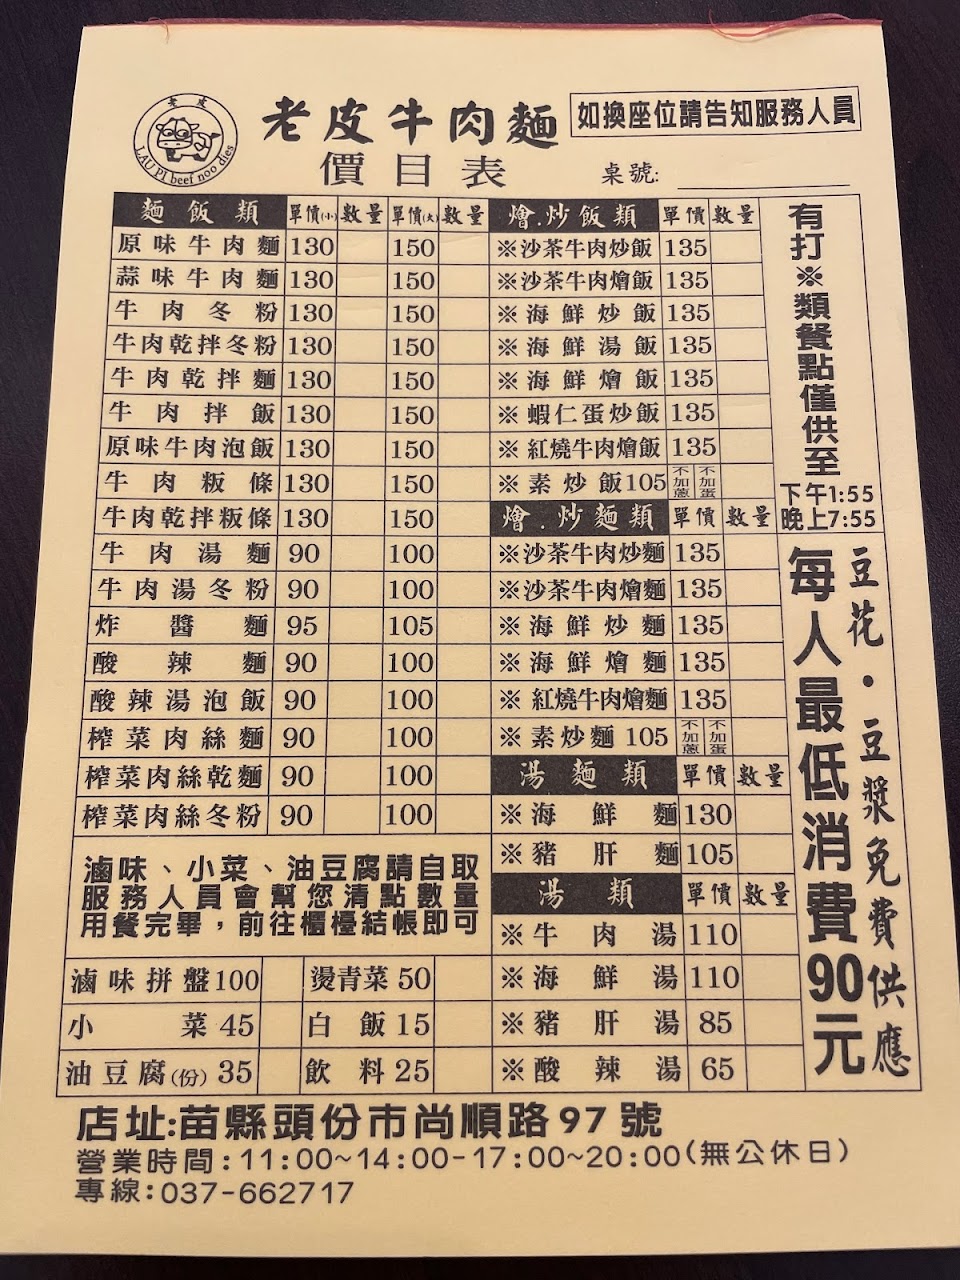 老皮
LAU PI beef noo dies
老皮牛肉麵
價目表
如換座位請告知服務人員
桌號:
麵飯類 單價(小) 數量 單價(大) 數量
原味牛肉麵 130 150
蒜味牛肉麵 130 150
牛肉冬粉 130 150
牛肉乾拌冬粉 130 150
牛肉乾拌麵 130 150
牛肉拌飯 130 150
原味牛肉泡飯 130 150
牛肉粄條 130 150
牛肉乾拌粄條 130 150
牛肉湯麵 90 100
牛肉湯冬粉 90 100
炸醬麵 95 105
酸辣麵 90 100
酸辣湯泡飯 90 100
榨菜肉絲麵 90 100
榨菜肉絲乾麵 90 100
榨菜肉絲冬粉 90 100
滷味、小菜、油豆腐請自取
服務人員會幫您清點數量
用餐完畢，前往櫃檯結帳即可
滷味拼盤100 燙青菜50
小菜45 白飯15
油豆腐(份)35 飲料25
燴.炒飯類 單價 數量
※沙茶牛肉炒飯 135
※沙茶牛肉燴飯 135
※海鮮炒飯 135
※海鮮湯飯 135
※海鮮燴飯 135
※蝦仁蛋炒飯 135
※紅燒牛肉燴飯 135
※素炒飯105 不加蔥 不加蛋
燴.炒麵類 單價 數量
※沙茶牛肉炒麵 135
※沙茶牛肉燴麵 135
※海鮮炒麵 135
※海鮮燴麵 135
※紅燒牛肉燴麵 135
※素炒麵105 不加蔥 不加蛋
湯麵類 單價 數量
※海鮮麵 130
※豬肝麵 105
湯類 單價 數量
※牛肉湯 110
※海鮮湯 110
※豬肝湯 85
※酸辣湯 65
有打※類餐點僅供至
下午1:55
晚上7:55
豆花・豆漿免費供應
每人最低消費90元
店址:苗縣頭份市尚順路97號
營業時間:11:00~14:00-17:00~20:00(無公休日)
專線:037-662717